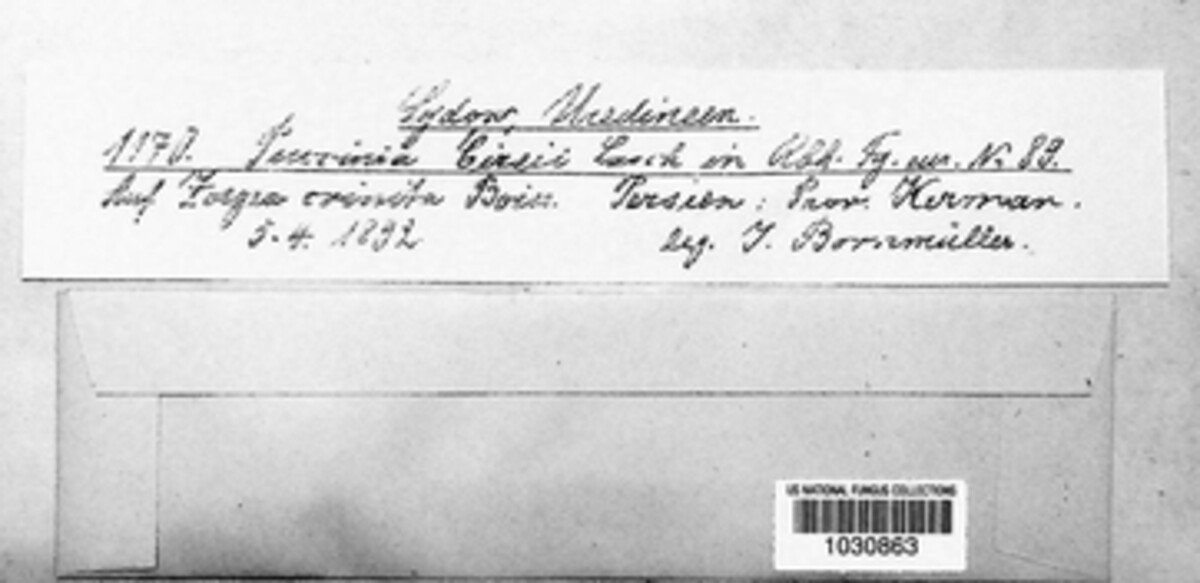 Sydow, Uredineen.
1170. Puccinia Cirsii Lasch in Rbh. Fg. eur. No 89.
Auf Zoegea crinita Boiss. Persien: Prov. Kerman.
5.4. 1892 leg. J. Bornmüller.
US NATIONAL FUNGUS COLLECTIONS
1030863